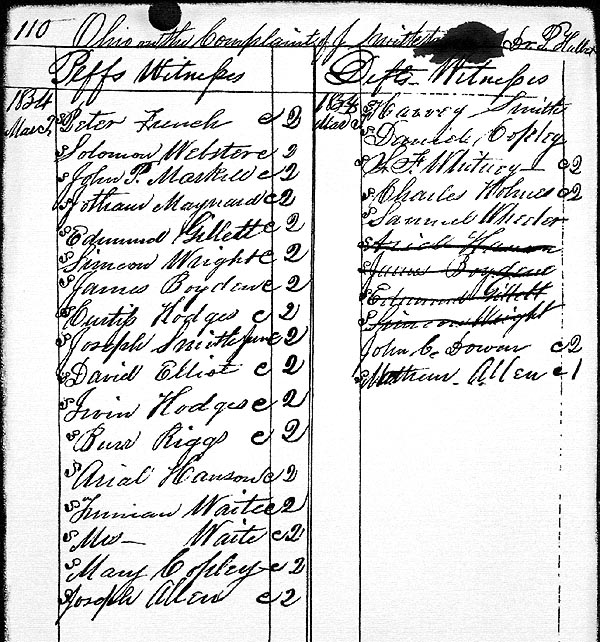 110 Ohio on the Complaint of J Smith Dr. P. Hulbert
Peffs Witnesses
1834
March
S Peter French c 2
S Solomon Webster c 2
S John P. Markell c 2
S Jotham Maynard c 2
S Edmund Gillett c 2
S Simeon Wright c 2
S James Boyden c 2
S Curtis Hodges c 2
S Joseph Smith Jun c 2
S David Elliot c 2
S Irvin Hodges c 2
S Burr Riggs c 2
S Arial Hanson c 2
S Truman Waite c 2
S Mrs — Waite c 2
S Mary Copley c 2
Joseph Allen c 2
Defts. Witnesses
1834
March
S Harvey Smith
S Daniel Copley
S F. Whitney — c 2
S Charles Holmes c 2
S Samuel Wheeler
S Ariel Hanson
S James Boyden
S Edmund Gillett
S Simeon Wright
John C. Dowen c 2
S Mathew Allen c 1